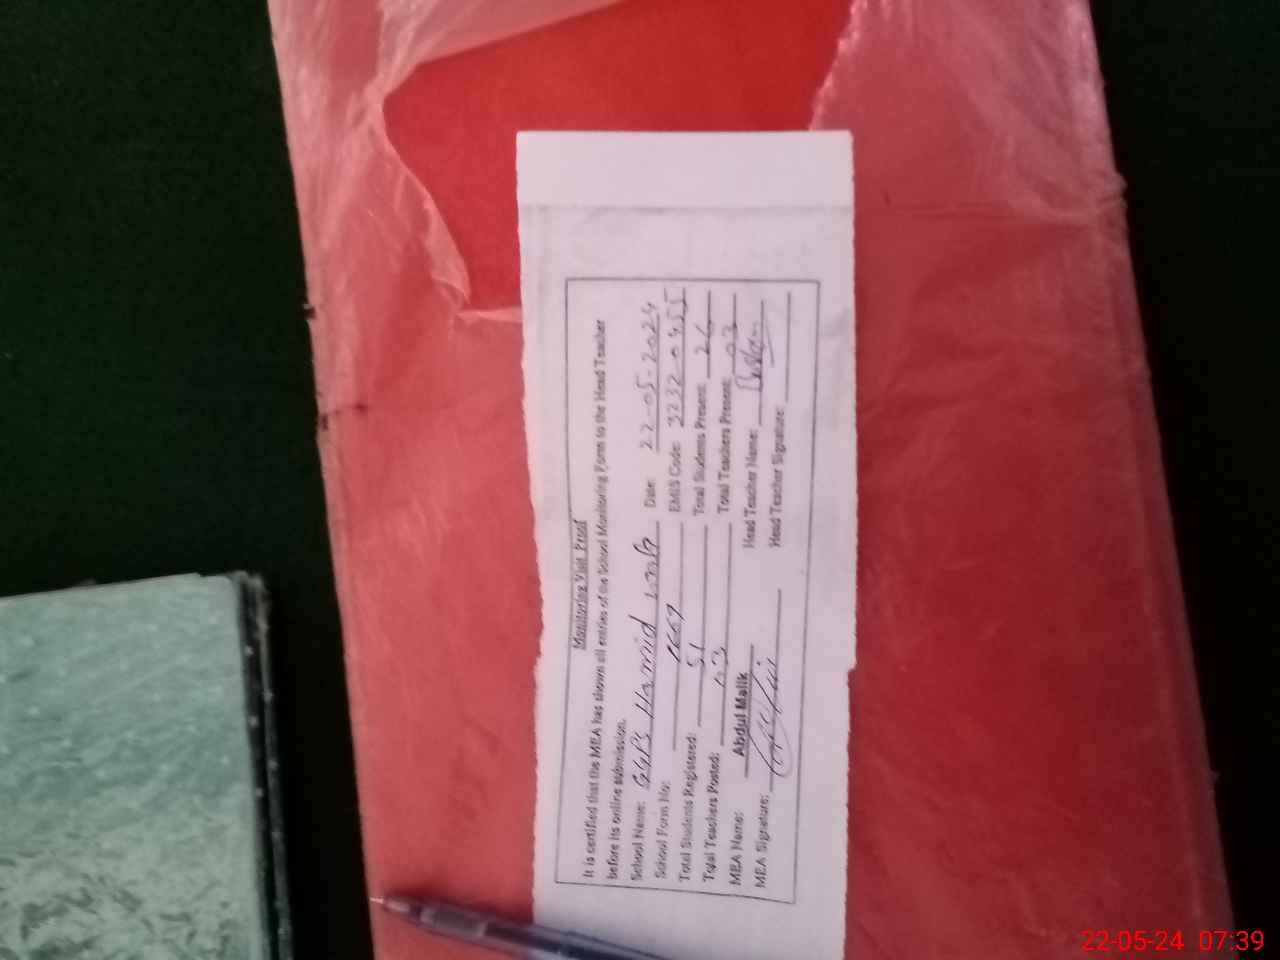 Monitoring Visit Proof
It is certified that the MEA has shown all entries of the School Monitoring Form to the Head Teacher
before its online submission.
School Name: GGPS Hamid Date: 22-05-2024
School Form No: 1669 EMIS Code: 3232-0455
Total Students Registered: 51 Total Students Present: 26
Total Teachers Posted: 03 Total Teachers Present: 03
MEA Name: Abdul Malik Head Teacher Name:
MEA Signature: Head Teacher Signature:
22-05-24 07:39